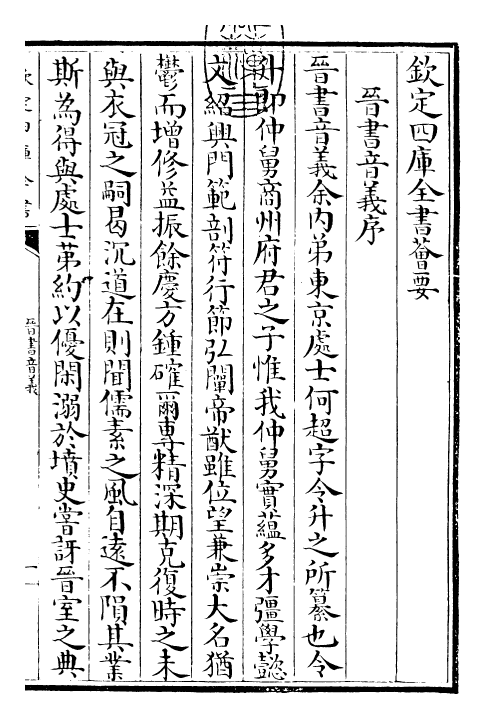 欽定四庫全書薈要
晉書音義序
晉書音義余內弟東京處士何超字令升之所纂也令
升即仲舅商州府君之子惟我仲舅實藴多才彊學懿
文紹興門範剖符行節弘闡帝猷雖位望兼崇大名猶
鬱而增修益振餘慶方鍾確爾專精深期克復時之未
與衣冠之嗣曷沉道在則聞儒素之風自遠不隕其業
斯為得與處士弟約以優閑溺於墳史嘗訝晉室之典
欽定四庫全書
晉書音義
一